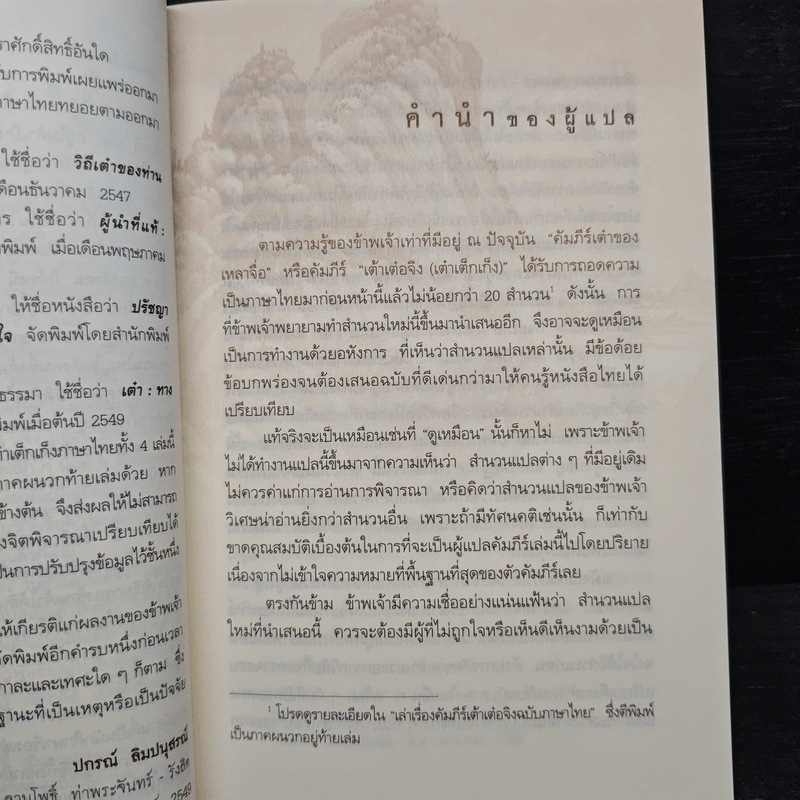 ราศักดิ์สิทธิ์อันใด
รับการพิมพ์เผยแพร่ออกมา
ภาษาไทยทยอยตามออกมา
ใช้ชื่อว่า วิถีเต๋าของท่าน
เดือนธันวาคม 2547
ใช้ชื่อว่า ผู้นำที่แท้ :
พิมพ์ เมื่อเดือนพฤษภาคม
ให้ชื่อหนังสือว่า ปรัชญา
ใจ จัดพิมพ์โดยสำนักพิมพ์
ธรรมา ใช้ชื่อว่า เต๋า : ทาง
พิมพ์เมื่อต้นปี 2549
เต๋าเต็กเก็งภาษาไทยทั้ง 4 เล่มนี้
ภาคผนวกท้ายเล่มด้วย หาก
ข้างต้น จึงส่งผลให้ไม่สามารถ
จิตพิจารณาเปรียบเทียบได้
เป็นการปรับปรุงข้อมูลไว้ชั้นหนึ่ง
ให้เกียรติแก่ผลงานของข้าพเจ้า
จัดพิมพ์อีกคำรบหนึ่งก่อนเวลา
กาละและเทศะใด ๆ ก็ตาม ซึ่ง
ฐานะที่เป็นเหตุหรือเป็นปัจจัย
ปกรณ์ ลิมปนุสรณ์
ท่าพระจันทร์ - รังสิต
2549
คำนำของผู้แปล
ตามความรู้ของข้าพเจ้าเท่าที่มีอยู่ ณ ปัจจุบัน “คัมภีร์เต๋าของ
เหลาจื่อ” หรือคัมภีร์ “เต้าเต๋อจิง (เต๋าเต็กเก็ง)” ได้รับการถอดความ
เป็นภาษาไทยมาก่อนหน้านี้แล้วไม่น้อยกว่า 20 สำนวน¹ ดังนั้น การ
ที่ข้าพเจ้าพยายามทำสำนวนใหม่นี้ขึ้นมานำเสนออีก จึงอาจจะดูเหมือน
เป็นการทำงานด้วยอหังการ ที่เห็นว่าสำนวนแปลเหล่านั้น มีข้อด้อย
ข้อบกพร่องจนต้องเสนอฉบับที่ดีเด่นกว่ามาให้คนรู้หนังสือไทยได้
เปรียบเทียบ
แท้จริงจะเป็นเหมือนเช่นที่ “ดูเหมือน” นั้นก็หาไม่ เพราะข้าพเจ้า
ไม่ได้ทำงานแปลนี้ขึ้นมาจากความเห็นว่า สำนวนแปลต่าง ๆ ที่มีอยู่เดิม
ไม่ควรค่าแก่การอ่านการพิจารณา หรือคิดว่าสำนวนแปลของข้าพเจ้า
วิเศษน่าอ่านยิ่งกว่าสำนวนอื่น เพราะถ้ามีทัศนคติเช่นนั้น ก็เท่ากับ
ขาดคุณสมบัติเบื้องต้นในการที่จะเป็นผู้แปลคัมภีร์เล่มนี้ไปโดยปริยาย
เนื่องจากไม่เข้าใจความหมายที่พื้นฐานที่สุดของตัวคัมภีร์เลย
ตรงกันข้าม ข้าพเจ้ามีความเชื่ออย่างแน่นแฟ้นว่า สำนวนแปล
ใหม่ที่นำเสนอนี้ ควรจะต้องมีผู้ที่ไม่ถูกใจหรือเห็นดีเห็นงามด้วยเป็น
¹ โปรดดูรายละเอียดใน “เล่าเรื่องคัมภีร์เต้าเต๋อจิงฉบับภาษาไทย” ซึ่งตีพิมพ์
เป็นภาคผนวกอยู่ท้ายเล่ม